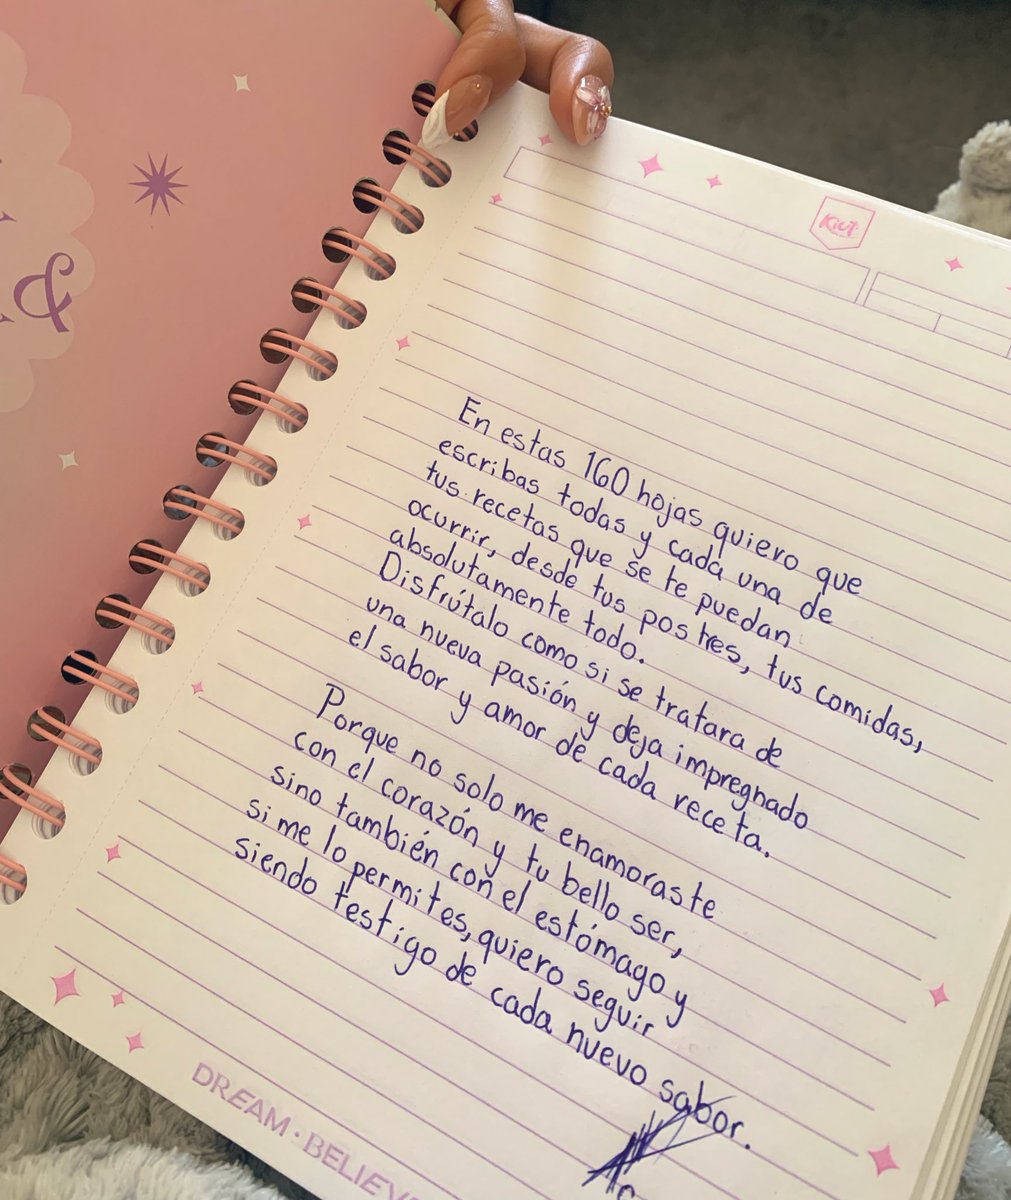 &
Kiut
En estas 160 hojas quiero que
escribas todas y cada una de
tus recetas que se te puedan
ocurrir, desde tus postres, tus comidas,
absolutamente todo.
Disfrútalo como si se tratara de
una nueva pasión y deja impregnado
el sabor y amor de cada receta.
Porque no solo me enamoraste
con el corazón y tu bello ser,
sino también con el estómago y
si me lo permites, quiero seguir
siendo testigo de cada nuevo sabor.
DREAM · BELIEVE